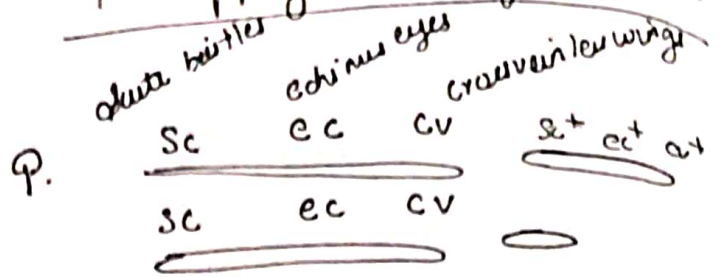 scute bristles echinus eyes crossveinless wings
sc ec cv sc+ ec+ cv+
P.
sc ec cv